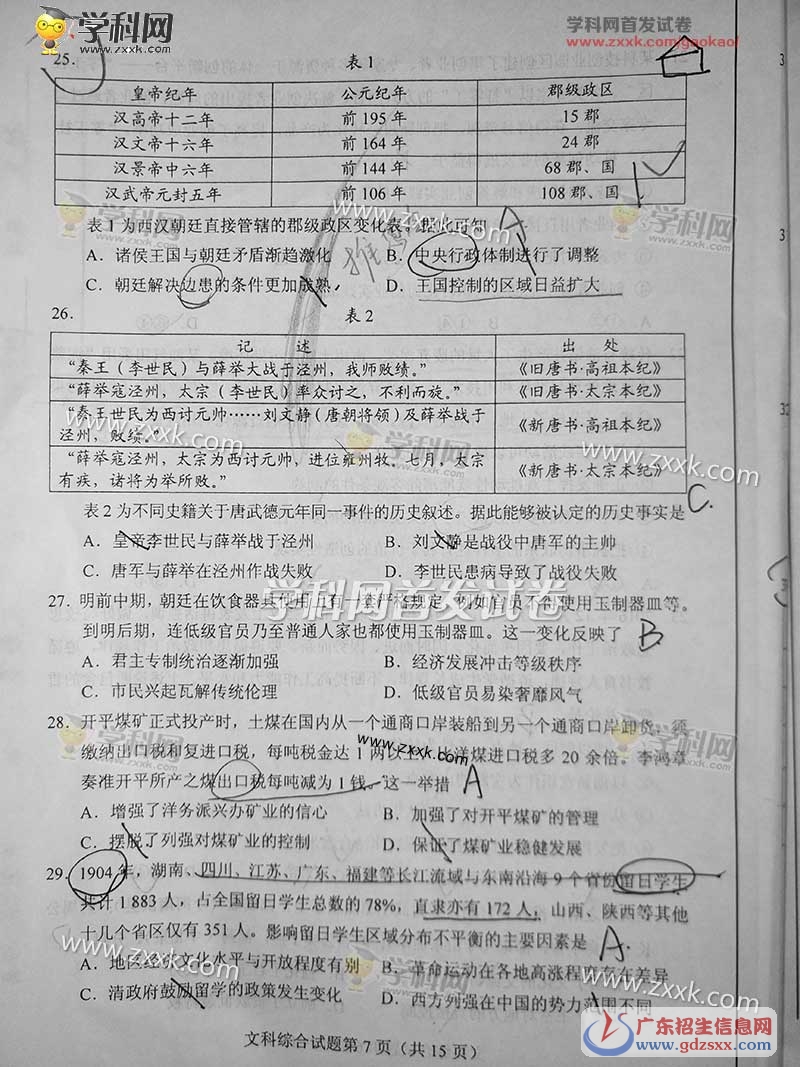 学科网
www.zxxk.com
学科网首发试卷
www.zxxk.com/gaokao/
25.
表 1
皇帝纪年 公元纪年 郡级政区
汉高帝十二年 前 195 年 15 郡
汉文帝十六年 前 164 年 24 郡
汉景帝中六年 前 144 年 68 郡、国
汉武帝元封五年 前 106 年 108 郡、国
表 1 为西汉朝廷直接管辖的郡级政区变化表。据此可知 A
A. 诸侯王国与朝廷矛盾渐趋激化 B. 中央行政体制进行了调整
C. 朝廷解决边患的条件更加成熟 D. 王国控制的区域日益扩大
26.
表 2
记 述 出 处
“秦王（李世民）与薛举大战于泾州，我师败绩。” 《旧唐书·高祖本纪》
“薛举寇泾州，太宗（李世民）率众讨之，不利而旋。” 《旧唐书·太宗本纪》
“秦王世民为西讨元帅……刘文静（唐朝将领）及薛举战于 《新唐书·高祖本纪》
泾州，败绩。”
“薛举寇泾州，太宗为西讨元帅，进位雍州牧。七月，太宗 《新唐书·太宗本纪》
有疾，诸将为举所败。”
表 2 为不同史籍关于唐武德元年同一事件的历史叙述。据此能够被认定的历史事实是 C.
A. 皇帝李世民与薛举战于泾州 B. 刘文静是战役中唐军的主帅
C. 唐军与薛举在泾州作战失败 D. 李世民患病导致了战役失败
学科网首发试卷
27. 明前中期，朝廷在饮食器具使用上有一套严格规定，例如官员不得使用玉制器皿等。
到明后期，连低级官员乃至普通人家也都使用玉制器皿。这一变化反映了 B
A. 君主专制统治逐渐加强 B. 经济发展冲击等级秩序
C. 市民兴起瓦解传统伦理 D. 低级官员易染奢靡风气
28. 开平煤矿正式投产时，土煤在国内从一个通商口岸装船到另一个通商口岸卸货，须
缴纳出口税和复进口税，每吨税金达 1 两以上，比洋煤进口税多 20 余倍。李鸿章
奏准开平所产之煤出口税每吨减为 1 钱。这一举措 A
A. 增强了洋务派兴办矿业的信心 B. 加强了对开平煤矿的管理
C. 摆脱了列强对煤矿业的控制 D. 保证了煤矿业稳健发展
29. 1904 年，湖南、四川、江苏、广东、福建等长江流域与东南沿海 9 个省份留日学生
共计 1 883 人，占全国留日学生总数的 78%，直隶亦有 172 人，山西、陕西等其他
十几个省区仅有 351 人。影响留日学生区域分布不平衡的主要因素是 A.
A. 地区经济文化水平与开放程度有别 B. 革命运动在各地高涨程度存在差异
C. 清政府鼓励留学的政策发生变化 D. 西方列强在中国的势力范围不同
文科综合试题第 7 页（共 15 页）
广东招生信息网
www.gdzsxx.com